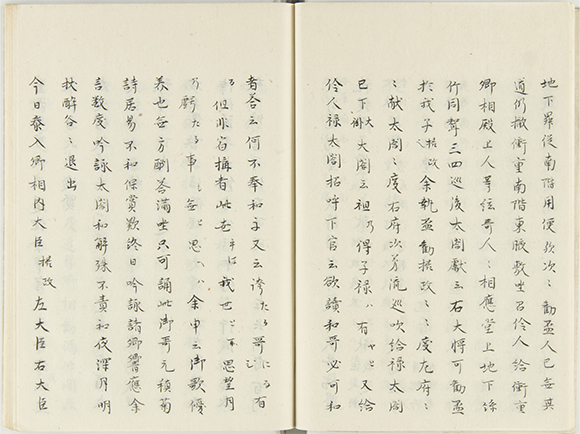 地下畢従南階用便数次〻勧盃人已無其
道仍撤衝重南階東腋敷坐召伶人給衝重
卿相殿上人等絃哥人〻相應堂上地下絲
竹同聲三四巡後太閤獻云右大将可勧盃
於我子摂政余執盃勧摂政〻〻度左府〻
〻献太閤〻〻度右府次第流巡次給禄太閤
已下大褂太閤云祖乃得子禄ハ有やと又給
伶人禄太閤招呼下官云欲讀和哥必可和
者答云何不奉和乎又云誇たる哥になむ有
る但非宿搆者此世乎は我世とそ思望月
乃虧たる事も無と思へハ余申云御歌優
美也無方酬答満坐只可誦此御哥元稹菊
詩居易不和深賞歎終日吟詠諸卿響應余
言数度吟詠太閤和解殊不責和夜深月明
扶酔各〻退出
今日参入卿相内大臣摂政左大臣右大臣